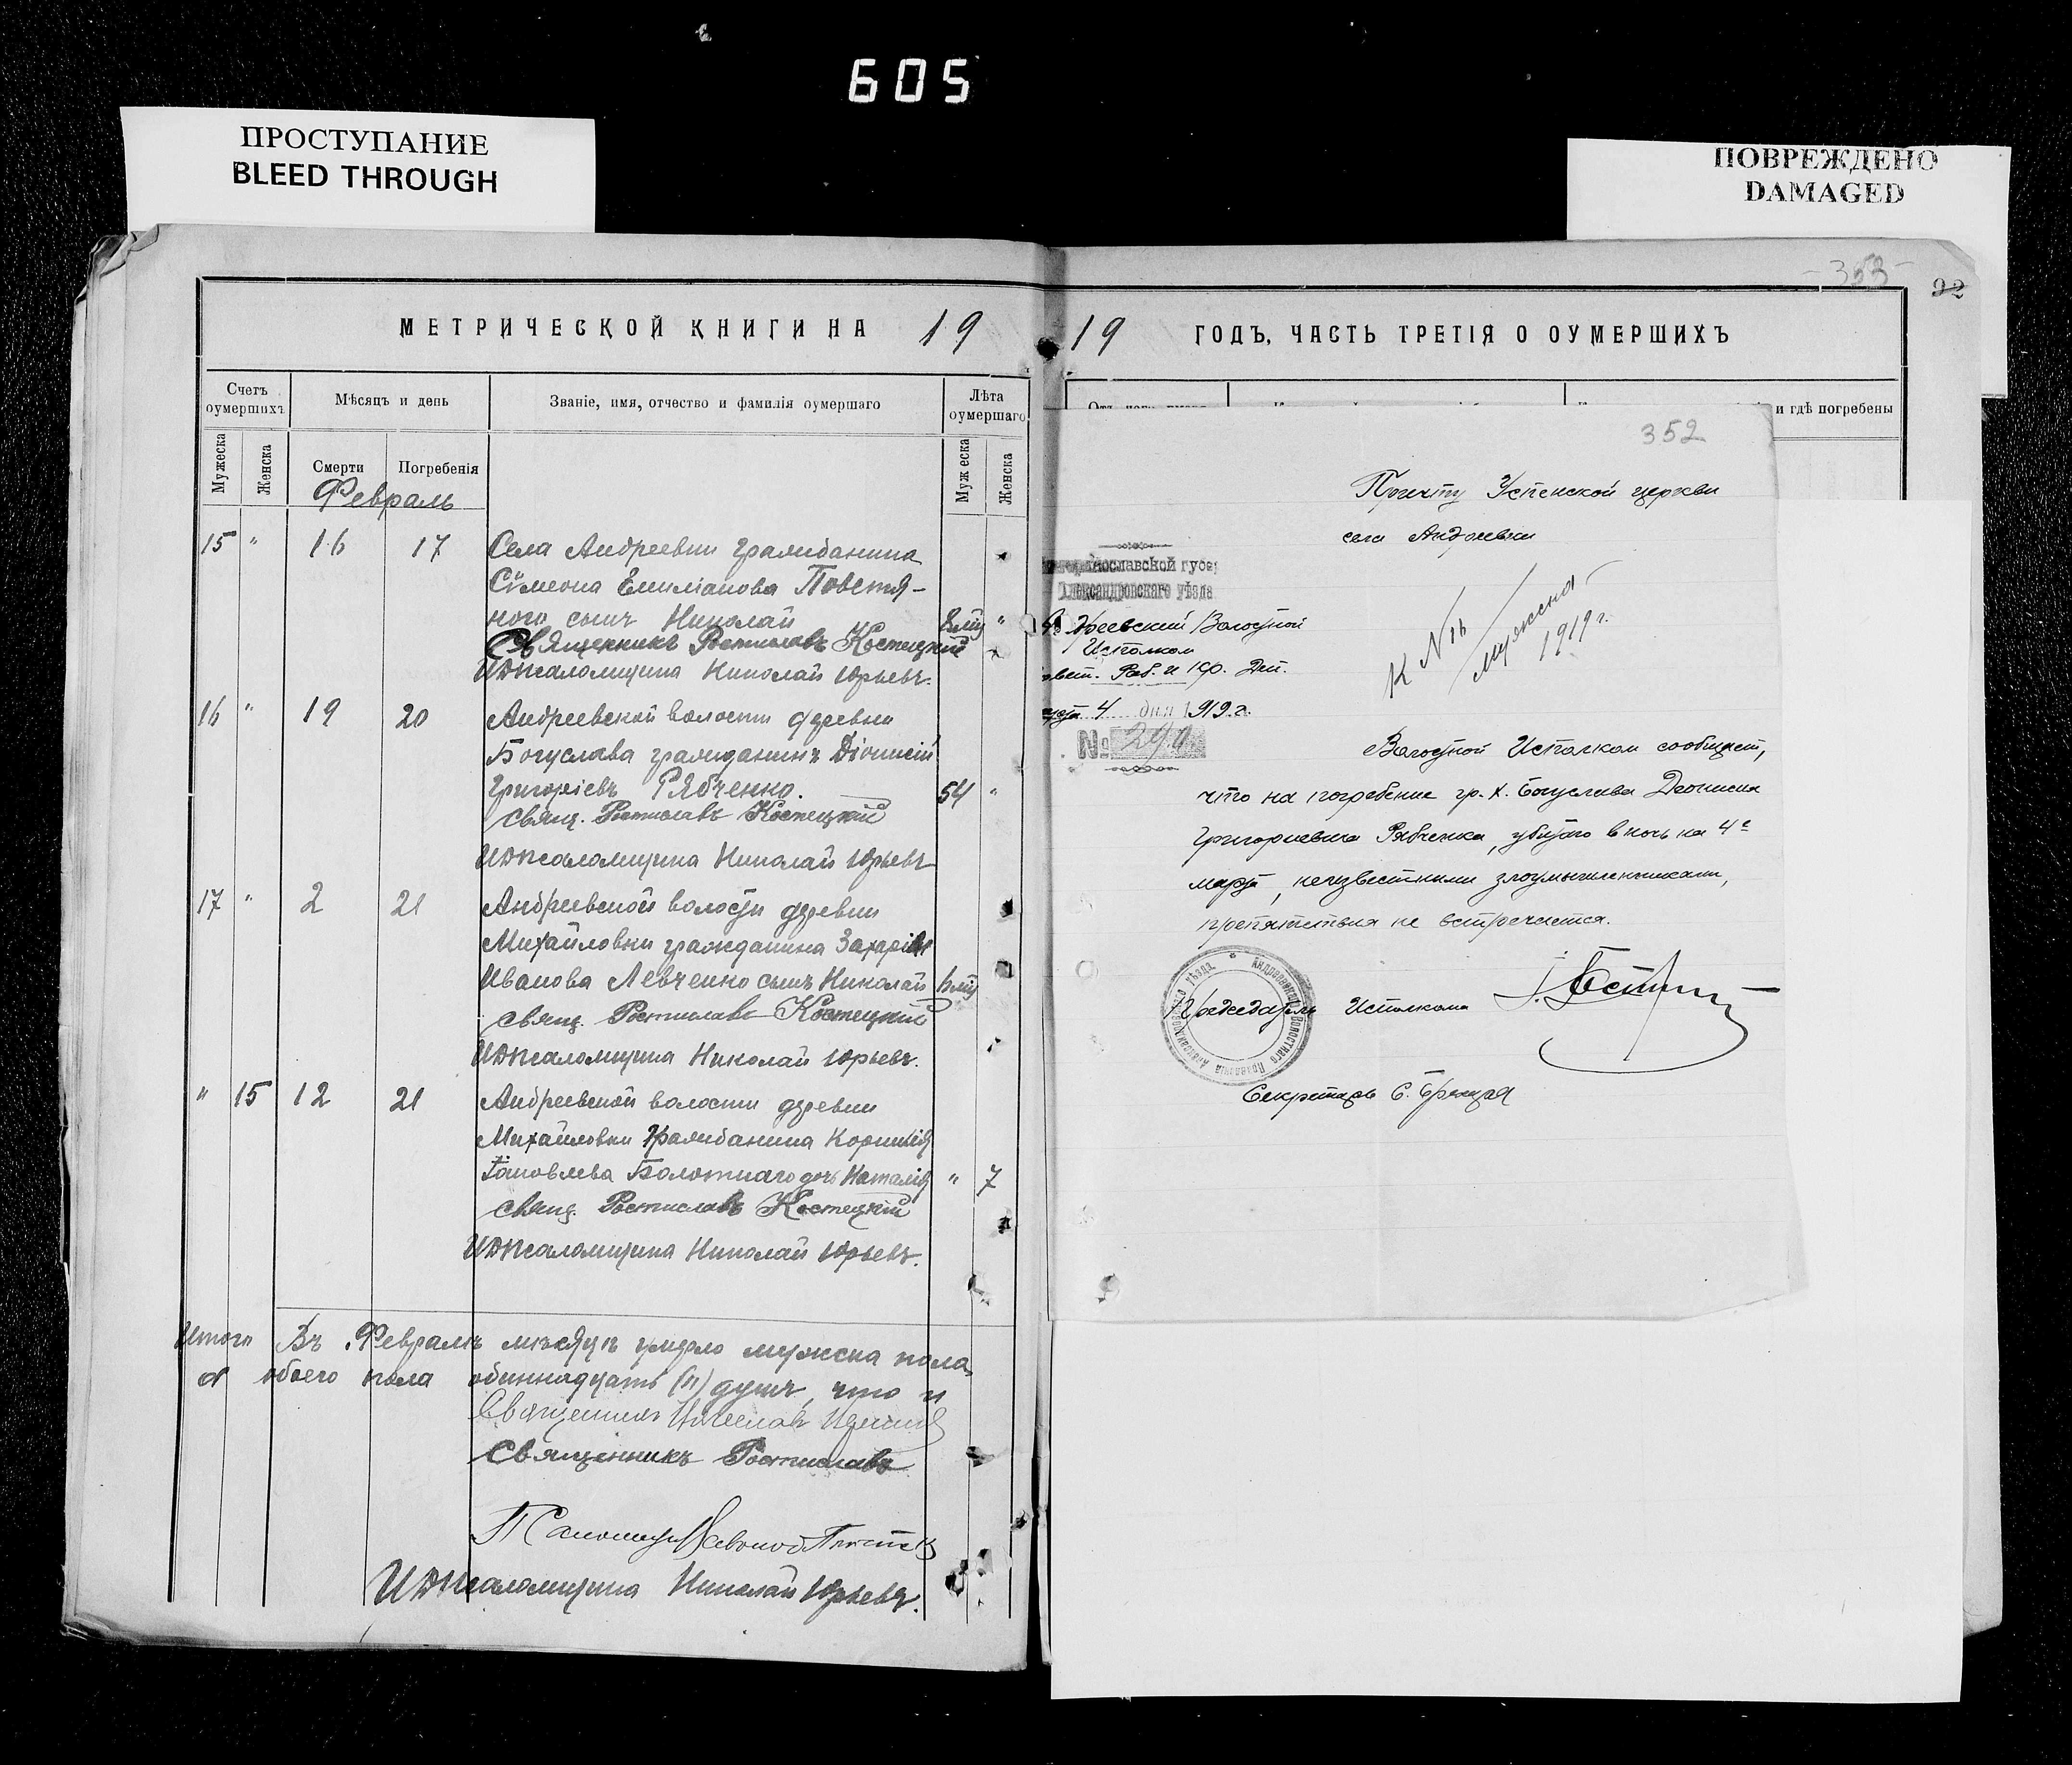 605
ПРОСТУПАНИЕ
BLEED THROUGH
ПОВРЕЖДЕНО
DAMAGED
353
92
МЕТРИЧЕСКОЙ КНИГИ НА 19
19 ГОДЪ, ЧАСТЬ ТРЕТІЯ О ОУМЕРШИХЪ
Счетъ оумершихъ
Мѣсяцъ и день
Званіе, имя, отчество и фамилія оумершаго
Лѣта оумершаго
Мужеска
Женска
Смерти
Погребенія
Мужеска
Женска
Февраль
15 " 16 17 Села Андреевки гражданина
Сѵмеона Емиліанова Поветя-
ного сынъ Николай "
Священникъ Ростиславъ Костецкій
ИДПсаломщика Николай Юрьевъ.
16 " 19 20 Андреевской волости деревни
Богуслава гражданинъ Діонисій
Григоріевъ Рябченко. 54 "
свящ. Ростиславъ Костецкій
ИДПсаломщика Николай Юрьевъ
17 " 2 21 Андреевской волости деревни
Михайловки гражданина Захаріи
Иванова Левченко сынъ Николай
свящ. Ростиславъ Костецкій
ИДПсаломщика Николай Юрьевъ.
" 15 12 21 Андреевской волости деревни
Михайловки гражданина Корнилія
Іаковлева Болотнаго дочь Наталія " 7
свящ. Ростиславъ Костецкій
ИДПсаломщика Николай Юрьевъ.
Итого Въ Февралѣ мѣсяцѣ умерло мужска пола,
а обоего пола одиннадцать (11) душъ, что и
Священникъ
Священникъ Ростиславъ
ИДПсаломщика Николай Юрьевъ.
и гдѣ погребены
352
Причту Успенской церкви
села Андреевки
славской губер
Александровскаго уѣзда
Волостной
Исполком
Раб. и Кр. Деп.
4 дня 1919 г.
№ 290
К №16
мужска
1919 г.
Волостной Исполком сообщает,
что на погребение гр. д. Богуслава Дионисия
Григориевича Рябченка, убитого в ночь на 4е
марта, неизвестными злоумышленниками,
препятствия не встречается.
Председатель Исполкома
Секретарь С.